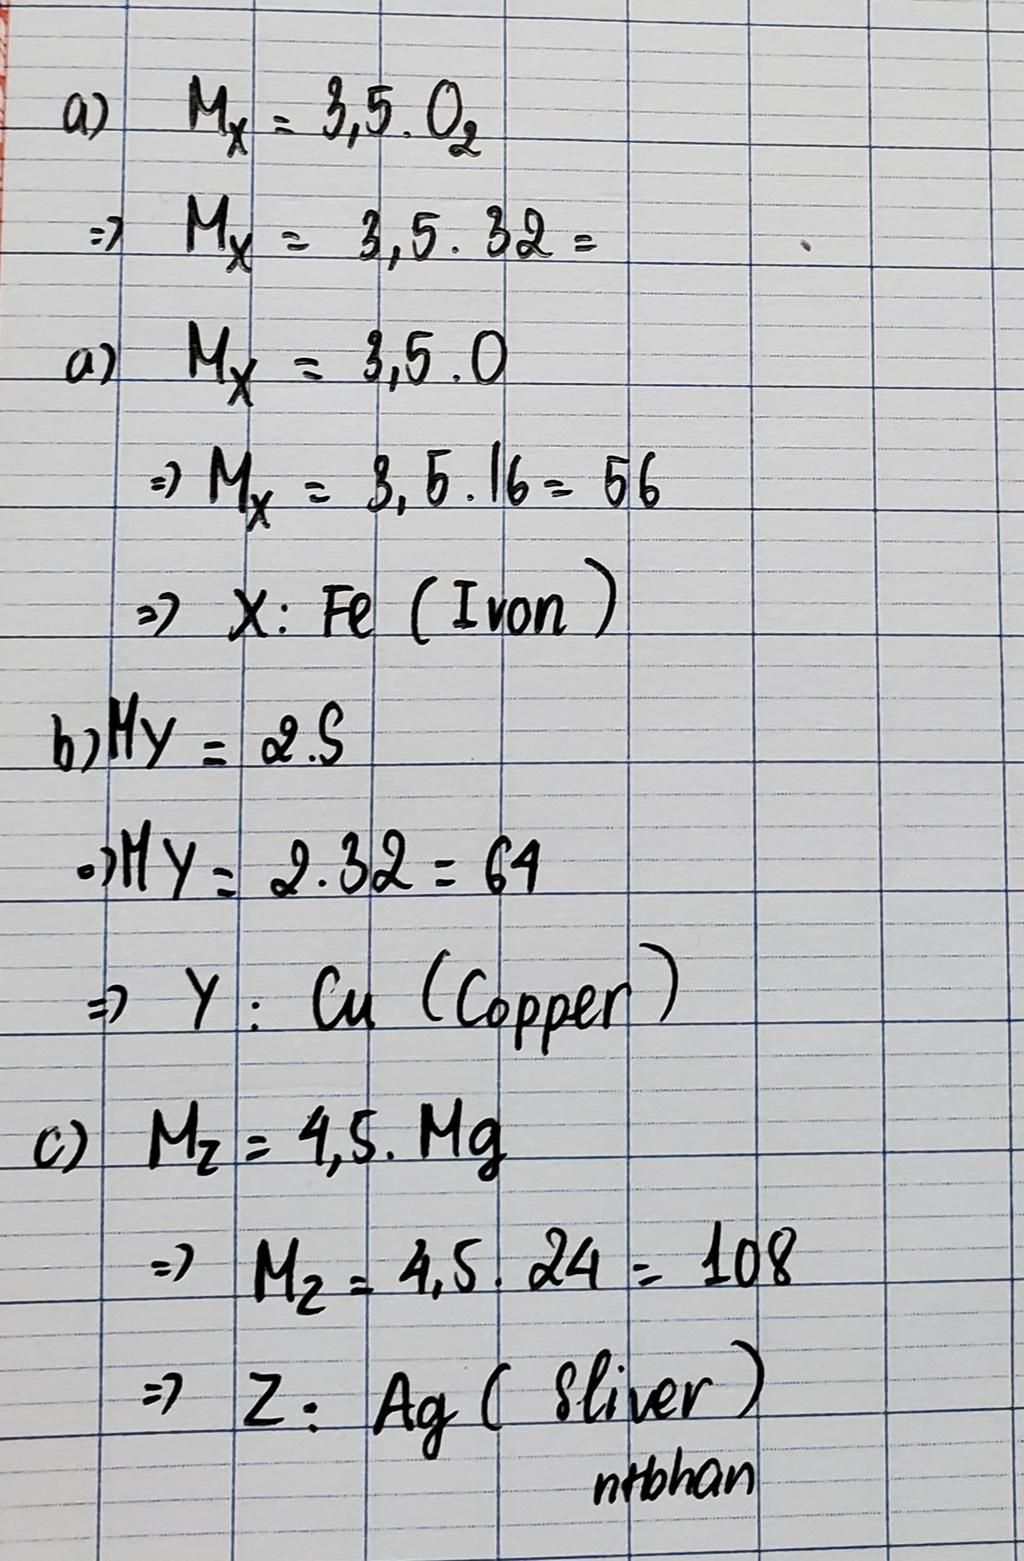 a) Mx = 3,5. O₂
=) Mx = 3,5. 32 =
a) Mx = 3,5. O
=) Mx = 3,5. 16 = 56
=) X: Fe (Iron)
b) My = 2.S
=) My = 2.32 = 64
=) Y: Cu (Copper)
c) Mz = 4,5. Mg
=) Mz = 4,5. 24 = 108
=) Z: Ag (Sliver)
ntbhan